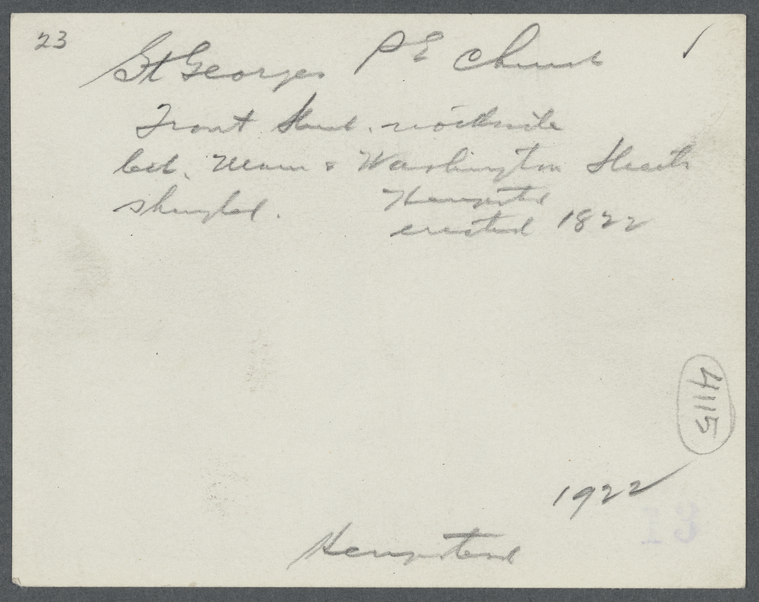 23
St Georges P E Church
Front Street. northside
bet. Main & Washington Streets
shingled. Hempstd
erected 1822
4115
1922
13
Hempstead